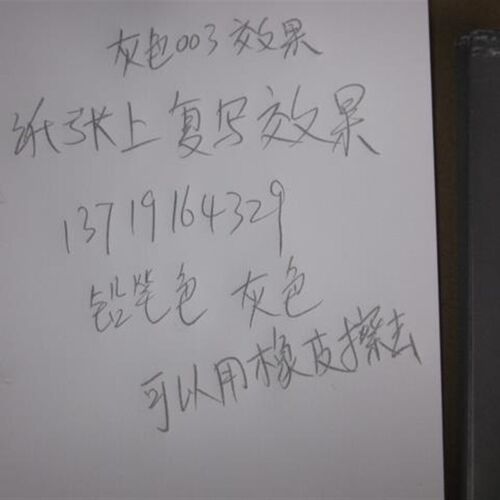 灰色003效果
纸张上复写效果
13719164329
铅笔色 灰色
可以用橡皮擦去